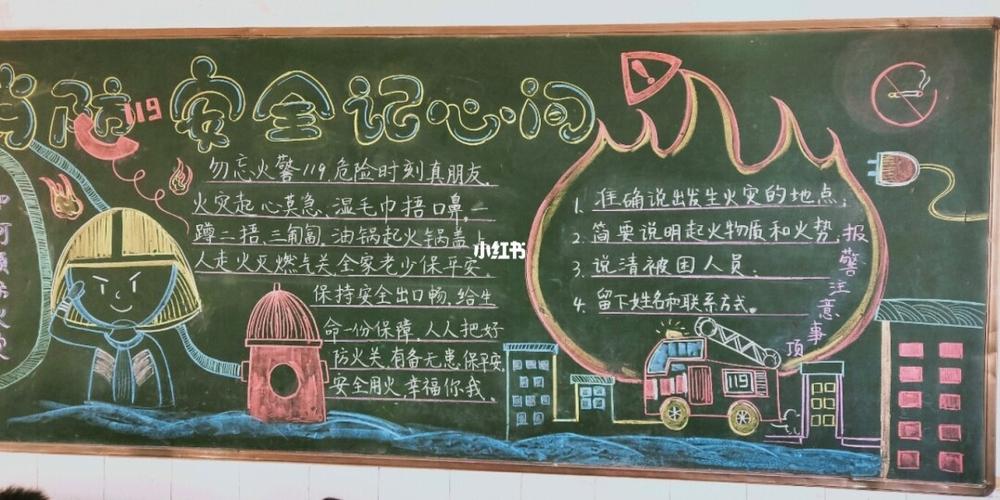 消防安全记心间
119
勿忘火警119.危险时刻真朋友.
火灾起心莫急.湿毛巾捂口鼻.一
蹲二捂.三匍匐.油锅起火锅盖上
人走火灭燃气关.全家老少保平安.
保持安全出口畅.给生
命一份保障.人人把好
防火关.有备无患.保平安.
安全用火.幸福你我.
小红书
1. 准确说出发生火灾的地点;
2. 简要说明起火物质和火势;
3. 说清被困人员.
4. 留下姓名和联系方式。
报警注意事项
119